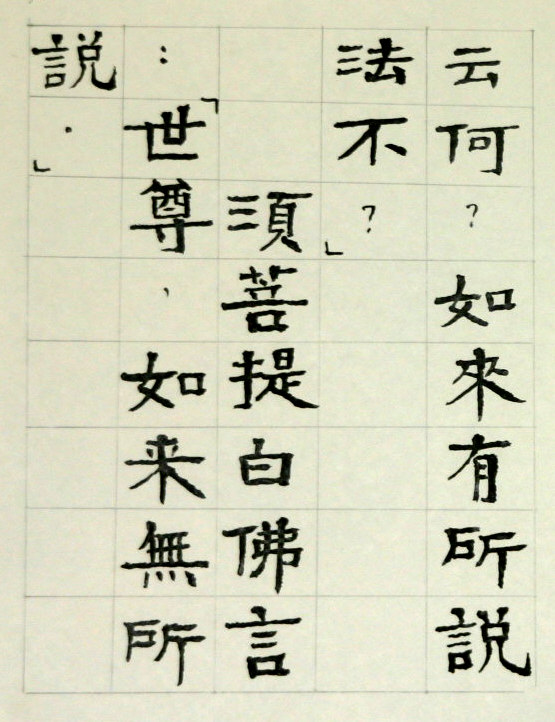 云何?如來有所説
法不?」
須菩提白佛言
:「世尊,如来無所
説.」